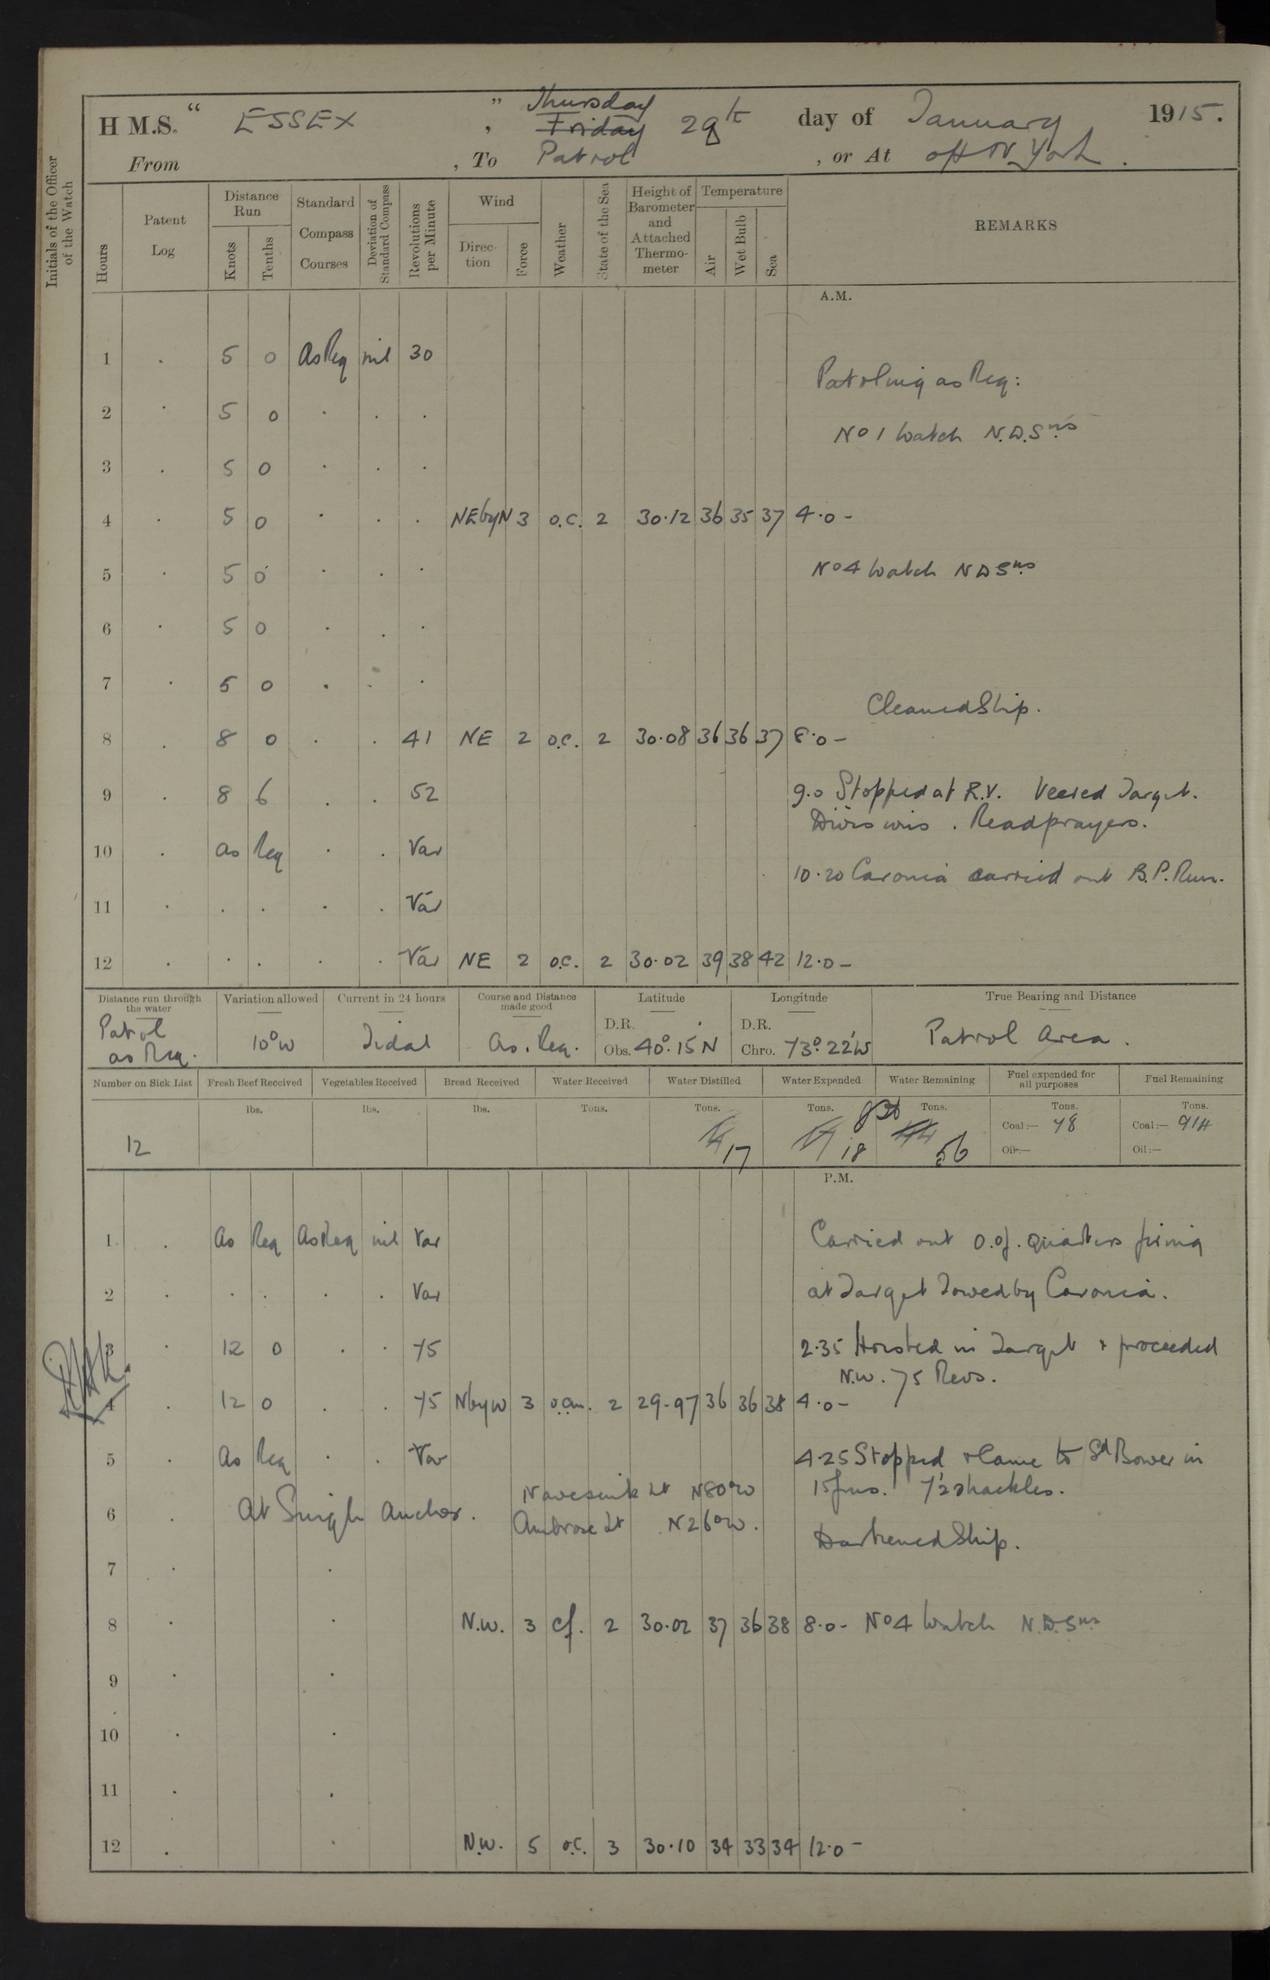 Thursday
H.M.S. " ESSEX " , Friday 29th day of January 1915.
From , To Patrol , or At off N York .
Initials of the Officer of the Watch
Hours Patent Log Distance Run Knots Tenths Standard Compass Courses Deviation of Standard Compass Revolutions per Minute Wind Direction Force Weather State of the Sea Height of Barometer and Attached Thermometer Temperature Air Wet Bulb Sea REMARKS
A.M.
1 . 5 0 As Req nil 30
Patroling as Req:
2 . 5 0 . . .
No 1 Watch N.D.Sns
3 . 5 0 . . .
4 . 5 0 . . . NEbyN 3 o.c. 2 30.12 36 35 37 4.0 -
5 . 5 0 . . . No 4 Watch N D Sns
6 . 5 0 . . .
7 . 5 0 . . .
Cleaned Ship.
8 . 8 0 . . 41 NE 2 o.c. 2 30.08 36 36 37 8.0 -
9 . 8 6 . . 52 9.0 Stopped at R.V. Veered Target.
Divisions . Read prayers.
10 . as Req . . Var
10.20 Caronia carried out B.P. Run.
11 . . . . . Var
12 . . . . . Var NE 2 o.c. 2 30.02 39 38 42 12.0 -
Distance run through the water Variation allowed Current in 24 hours Course and Distance made good Latitude Longitude True Bearing and Distance
Patrol as Req. 10°W Tidal As. Req. D.R. Obs. 40°.15 N D.R. Chro. 73°.22'W Patrol Area .
Number on Sick List Fresh Beef Received Vegetables Received Bread Received Water Received Water Distilled Water Expended Water Remaining Fuel expended for all purposes Fuel Remaining
lbs. lbs. lbs. Tons. Tons. Tons. Tons. Tons. Tons.
12 17 18 56 Coal:— 48 Oil:— Coal:— 914 Oil:—
P.M.
1 . As Req As Req nil Var Carried out O.of. Quarters firing
2 . . . . . Var at Target Towed by Caronia.
3 . 12 0 . . 75 2.35 Hoisted in Target & proceeded
N.W. 75 Revs.
4 . 12 0 . . 75 NbyW 3 o.c.m. 2 29.97 36 36 38 4.0 -
5 . As Req . . Var 4.25 Stopped & Came to Sd Bower in
15 fms. 7½ shackles.
6 . At Single Anchor. Navesink Lt N80°W
Ambrose Lt N26°W.
Darkened Ship.
7 . .
8 . N.W. 3 cf. 2 30.02 37 36 38 8.0 - No 4 Watch N.D.Sns
9 . .
10 . .
11 . .
12 . . N.W. 5 o.c. 3 30.10 34 33 34 12.0 -